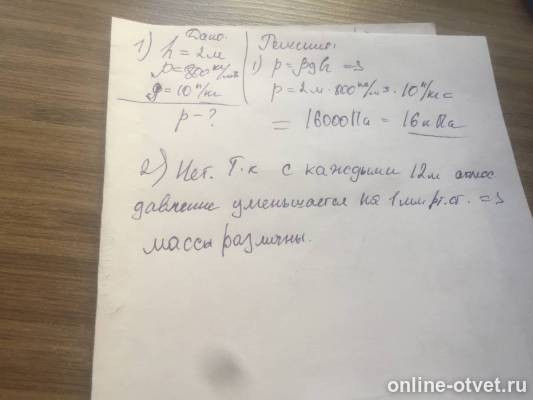 1) Дано:
h = 2м
ρ = 800 кг/м³
g = 10 н/кг
p - ?
Решение:
1) p = ρgh =>
p = 2м · 800 кг/м³ · 10 н/кг =
= 16000 Па = 16 кПа
2) Нет. Т.к с каждыми 12м атмос
давление уменьшается на 1 мм рт. ст. =>
массы различны.
online-otvet.ru